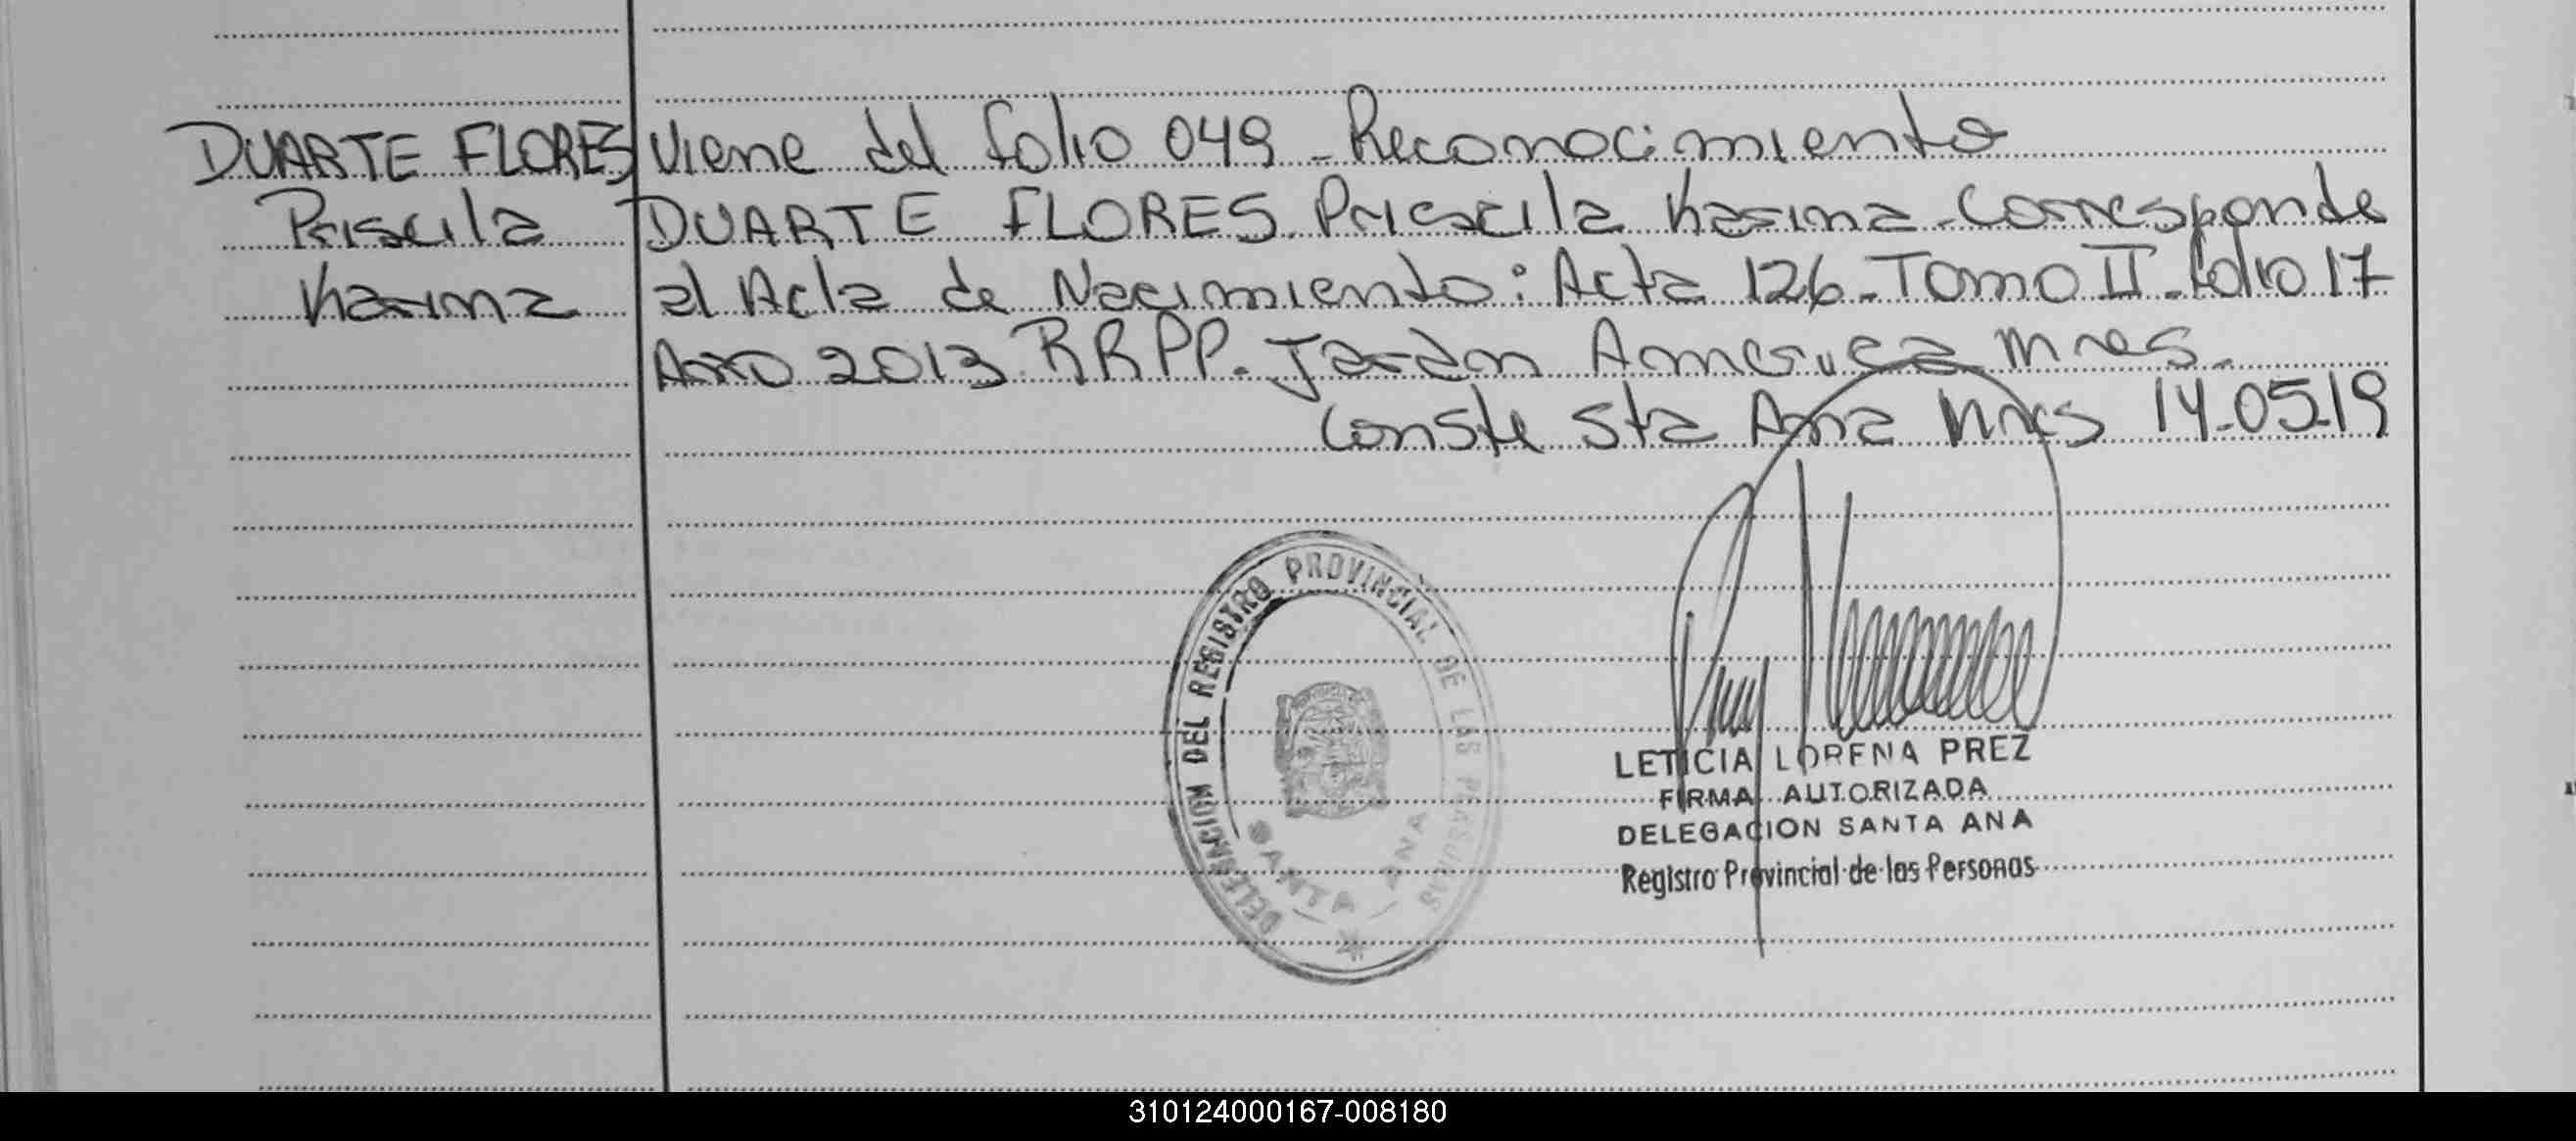 DUARTE FLORES
Priscila
Karina
Viene del folio 049 - Reconocimiento
DUARTE FLORES Priscila Karina - Corresponde
al Acta de Nacimiento: Acta 126 - Tomo II - folio 17
Año 2013 RRPP. Jardin America Mnes.
Conste Sta Ana Mnes 14-05-19
DELEGACION DEL REGISTRO PROVINCIAL DE LAS PERSONAS
SANTA ANA
LETICIA LORENA PREZ
FIRMA AUTORIZADA
DELEGACION SANTA ANA
Registro Provincial de las Personas
310124000167-008180